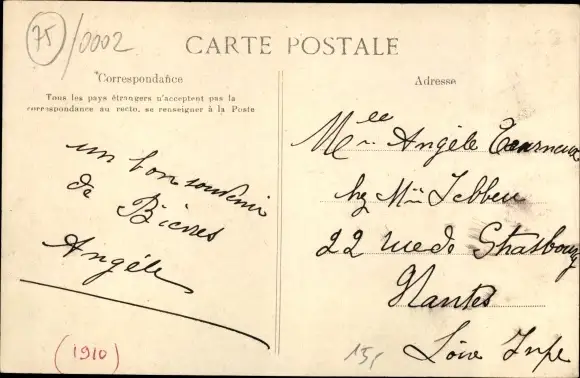 75/0002
CARTE POSTALE
Correspondance
Tous les pays étrangers n'acceptent pas la
correspondance au recto, se renseigner à la Poste
un bon souvenir
de Bièvres
Angèle
(1910)
Adresse
Melle Angèle
chez Mme
22 rue de Strasbourg
Nantes
Loire Infre
15,